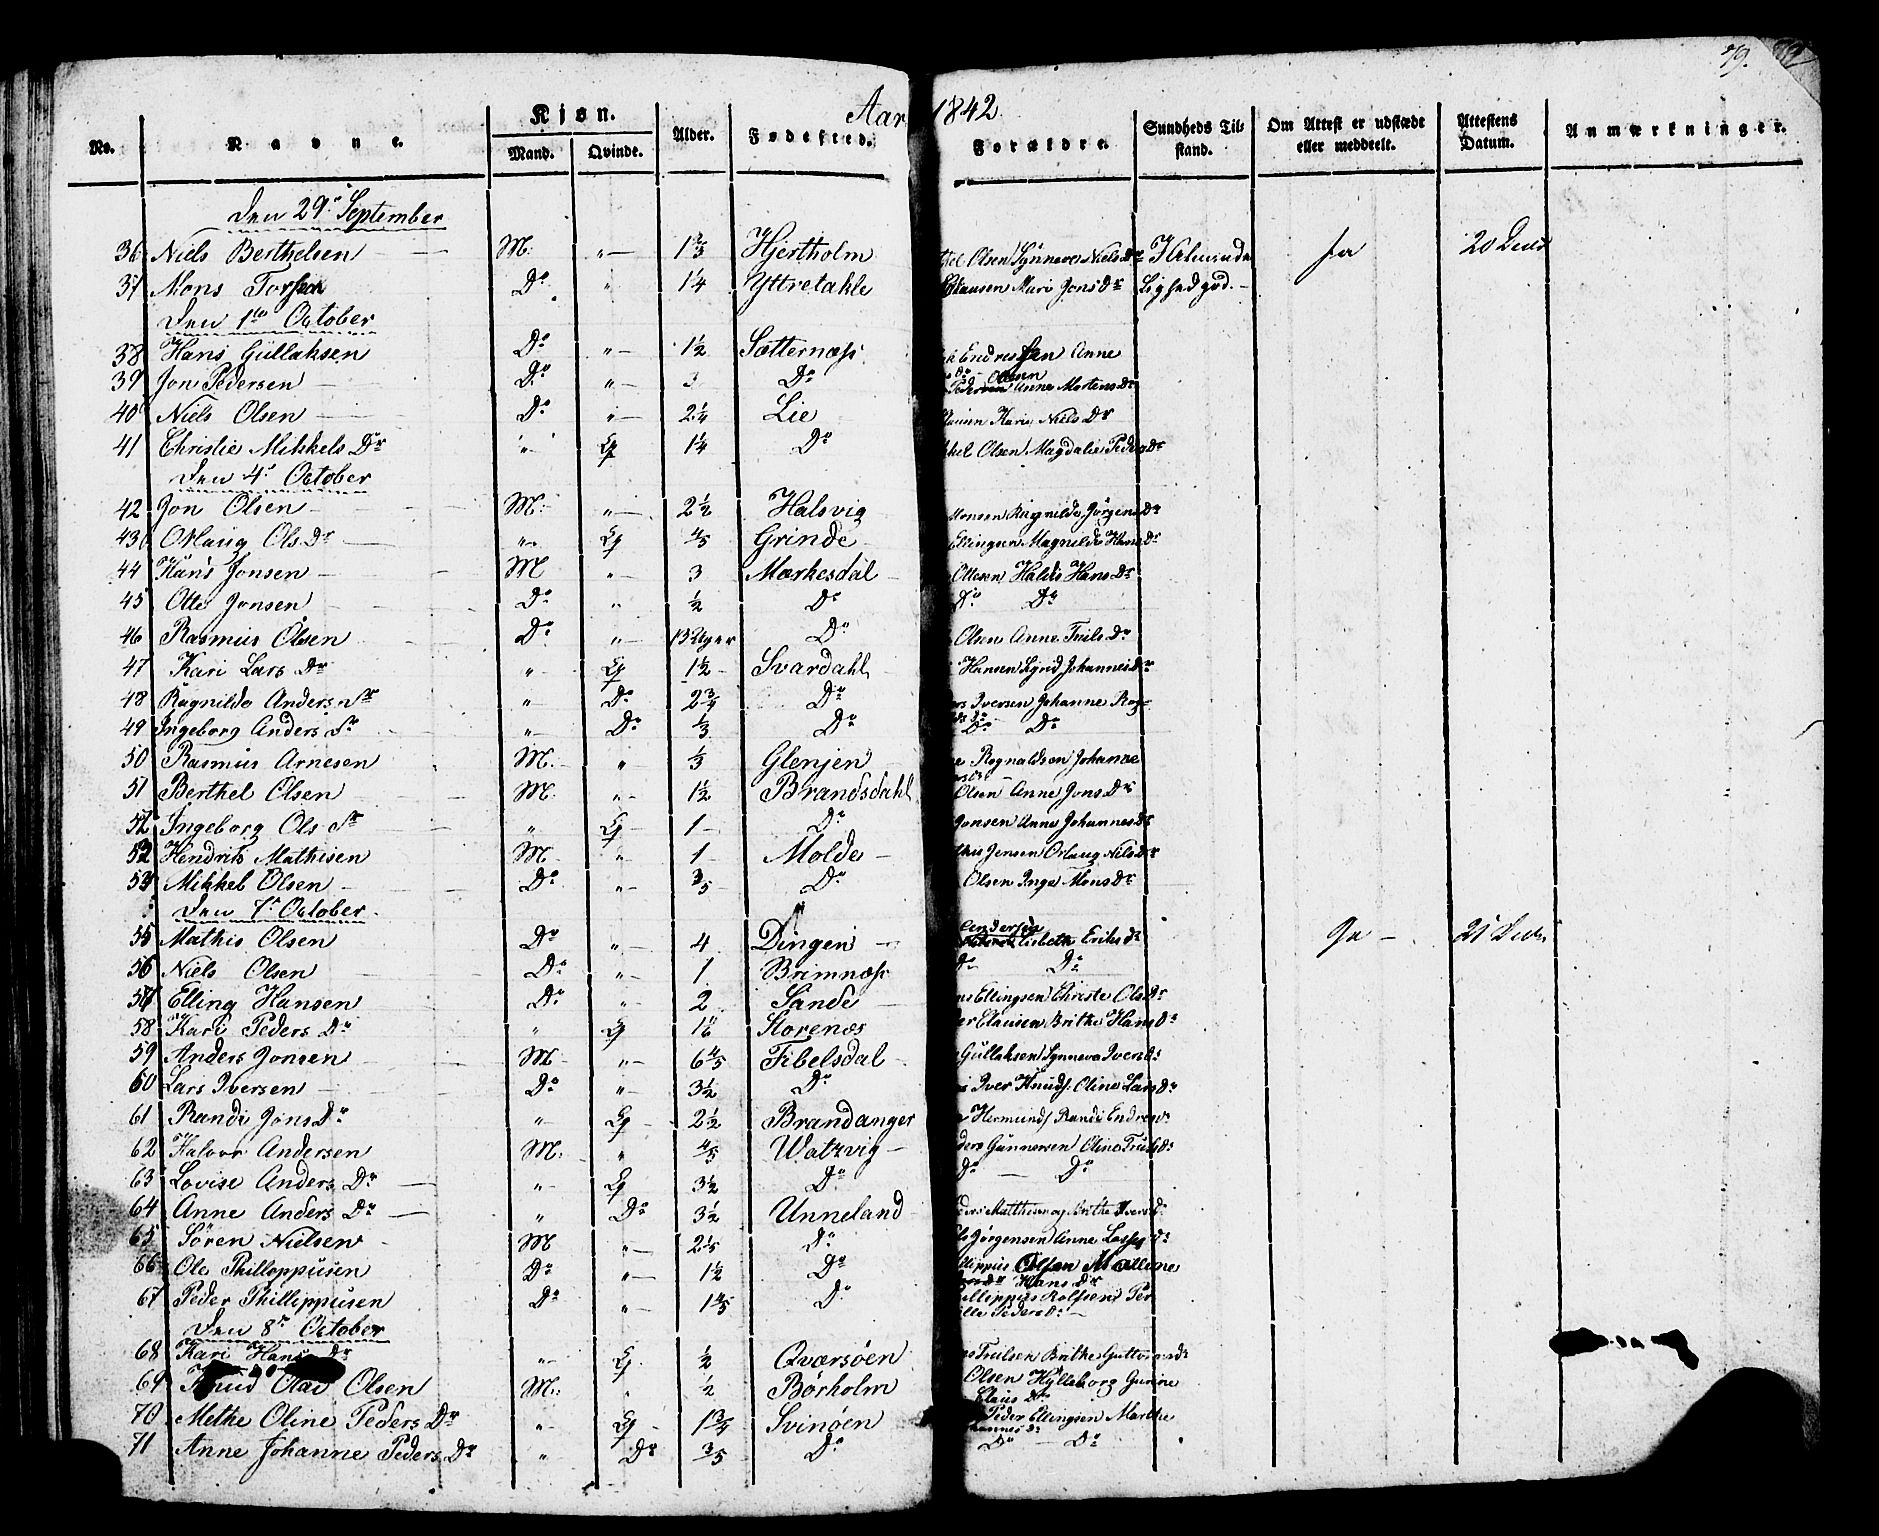 79.
Aar 1842
No. Navne. Kjøn. Mand. Qvinde. Alder. Fødested. Forældre. Sundheds Tilstand. Om Attest er udstædt eller meddeelt. Attestens Datum. Anmærkninger.
Den 29de September
36 Niels Berthelsen M: " 1 2/3 Hjertholm Olsen Synneve Niels Dr Ja 20 Decbr
37 Mons Do " 1 1/4 Yttretahle Clausen Mari Jons Dr Lighed god.
Den 1ste October
38 Hans Gullaksen Do " 1 1/2 Sætternæss Endresen Anne
39 Jon Pedersen Do " 3 Do Olsen Anne Mortens Dr
40 Niels Olsen Do " 2 1/4 Lie Kari Niels Dr
41 Christie Mikkels Dr " Q 1 1/4 Do kel Olsen Magdalie Peders Dr
Den 4de October
42 Jon Olsen M: " 2 1/2 Halsvig Monsen Ragnilde Jørgens Dr
43 Orlaug Ols Dr " Q 4/5 Grinde Ellingsen Magnilde Hans Dr
44 Hans Jonsen M " 3 Mærkesdal Ottesen Haldis Hans Dr
45 Otte Jonsen Do " 1/2 Do Do Do
46 Rasmus Olsen Do " 13 Uger Do Olsen Anne Truls Dr
47 Kari Lars Dr " Q 1 1/2 Svardahl Hansen Sigrid Johannes Dr
48 Ragnilde Anders Dr " Do 2 3/4 Do Iversen Johanne Rog-
49 Ingeborg Anders Dr " Do 1/3 Do Do Do
50 Rasmus Arnesen M: " 1/3 Glenjen Rognaldsen Johanne
51 Berthel Olsen M: " 1 1/2 Brandsdahl Olsen Anne Jons Dr
52 Ingeborg Ols Dr " Q 1 Do Jonsen Anne Johannes Dr
53 Hendrik Mathisen M " 1 Molde Jensen Orlaug Niels Dr
54 Mikkel Olsen Do " 3/5 Do Olsen Inge Mons Dr
Den 7de October
55 Mathis Olsen Do " 4 Dingen Andersen Lisbeth Eriks Dr Ja 21 Decbr
56 Niels Olsen Do " 1 Brimnæss Do Do
57 Elling Hansen Do " 2 Sande Ellingsen Christe Ols Dr
58 Kari Peders Dr " Q 1 1/6 Storenæs Clausen Brithe Hans Dr
59 Anders Jonsen M " 6 4/5 Fibelsdal Gullaksen Synneva Ivers Dr
60 Lars Iversen Do " 3 1/2 Do Iver Knuds. Oline Lars Dr
61 Randi Jons Dr " Q 2 1/2 Brandanger Hermunds. Randi Endres Dr
62 Halvor Andersen M: " 4/5 Watzvig Gunnersen Oline Truls Dr
63 Lovise Anders Dr " Q 3 1/2 Do Do Do
64 Anne Anders Dr " Do 3 1/2 Unneland Matthiesen Brithe Ivers Dr
65 Sören Nielsen M " 2 1/5 Do Jørgensen Anne Lasses Dr
66 Ole Phillippusen Do " 1 1/2 Do Olsen Malline Hans Dr
67 Peder Phillippusen Do " 1 4/5 Do Rolfsen Per nille Peders Dr
Den 8de October
68 Kari Hans Dr " Q 1/2 Qværsøen Trulsen Brithe Guttorms Dr
69 Knud Olai Olsen M: " 1/2 Børholm Olsen Hylleborg Gurine Claus Dr
70 Methe Oline Peders Dr " Q 1 3/4 Svinøen Peder Ellingsen Marthe Johannes Dr
71 Anne Johanne Peders Dr " Do 3/5 Do Do Do